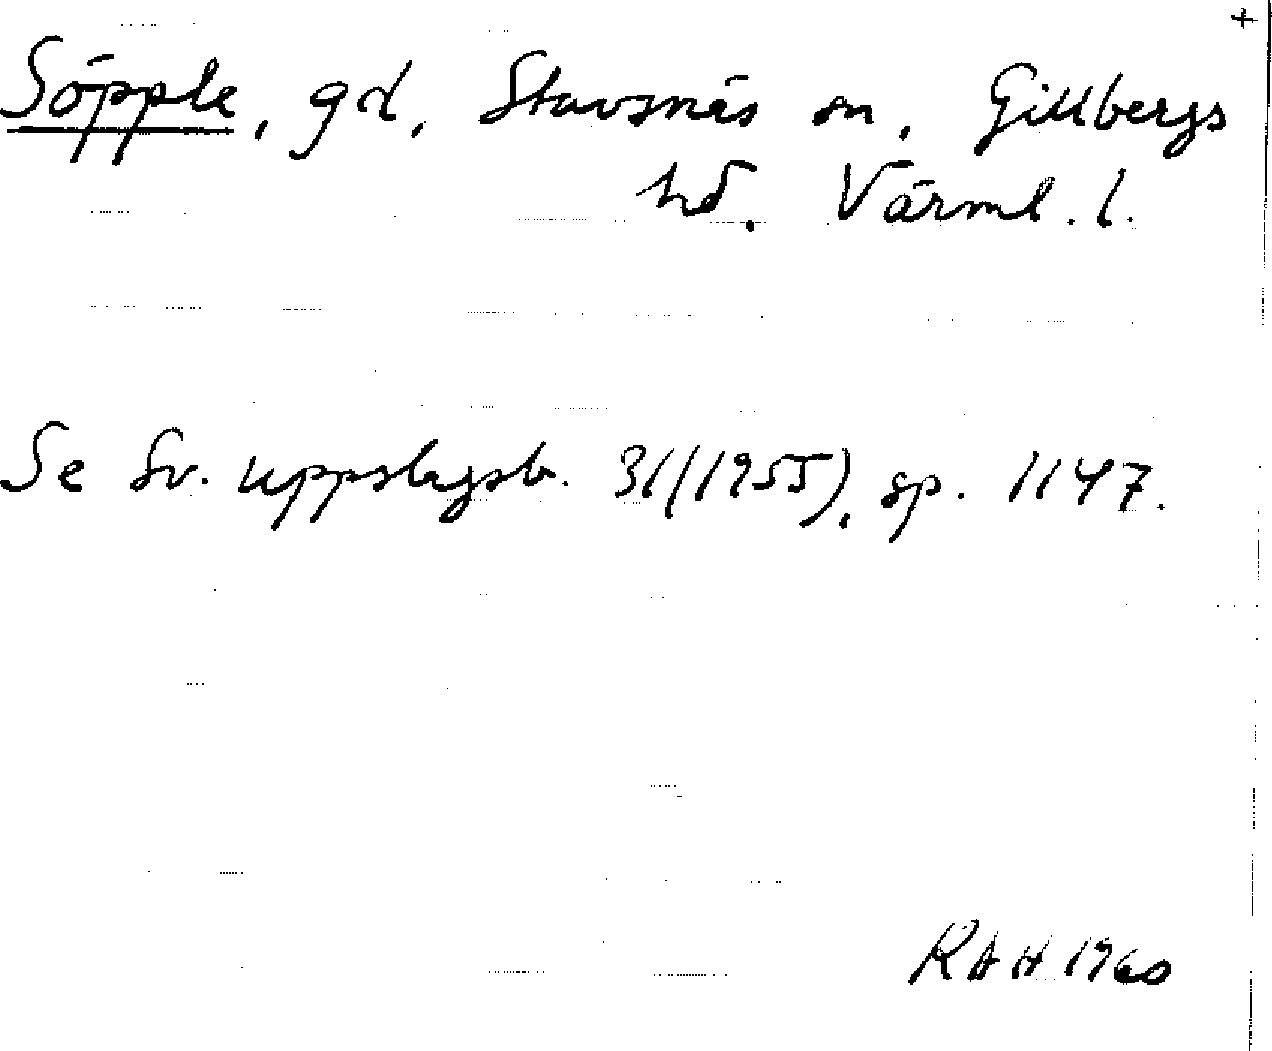 +
Söpple, gd, Stavsnäs sn, Gillbergs
hd. Värml. l.
Se Sv. uppslagsb. 31(1955), sp. 1147.
RAH 1960